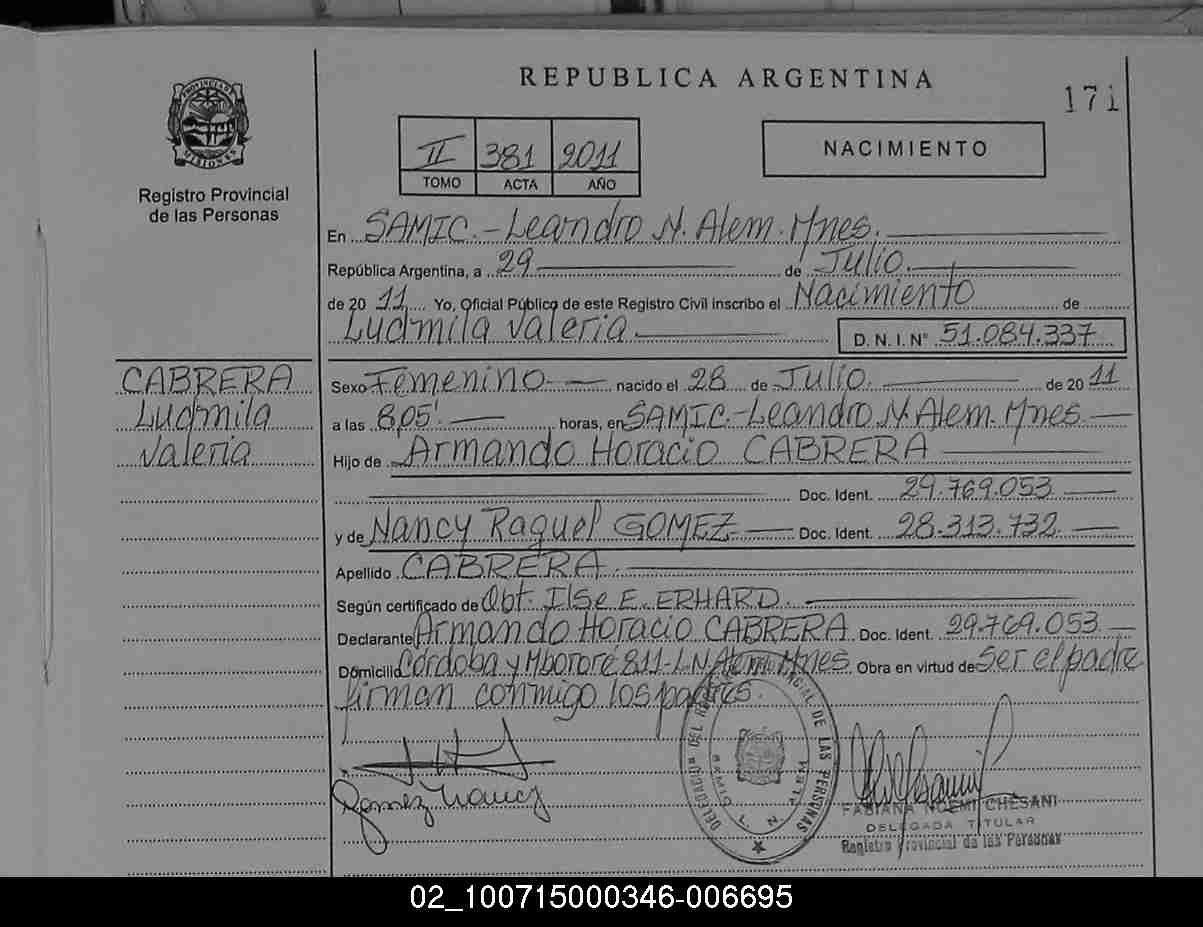 REPUBLICA ARGENTINA
171
PROVINCIA DE MISIONES
Registro Provincial
de las Personas
II 381 2011
TOMO ACTA AÑO
NACIMIENTO
En SAMIC.-Leandro N. Alem. Mnes.
República Argentina, a 29 de Julio.
de 2011 Yo, Oficial Público de este Registro Civil inscribo el Nacimiento de
Ludmila Valeria. D. N. I. Nº 51.084.337
CABRERA
Ludmila
Valeria
Sexo Femenino nacido el 28 de Julio. de 2011
a las 8,05' horas, en SAMIC.-Leandro N. Alem. Mnes.
Hijo de Armando Horacio CABRERA
Doc. Ident. 29.769.053
y de Nancy Raquel GOMEZ Doc. Ident. 28.313.732
Apellido CABRERA.
Según certificado de Obt. Ilse E. ERHARD.
Declarante Armando Horacio CABRERA Doc. Ident. 29.769.053
Domicilio Córdoba y Mbororé 811-L.N.Alem. Mnes. Obra en virtud de Ser el padre
firman conmigo los padres.
Gomez Nancy
DELEGACION DEL REGISTRO PROVINCIAL DE LAS PERSONAS
SAMIC L. N. ALEM
FABIANA NOEMI CHESANI
DELEGADA TITULAR
Registro Provincial de las Personas
02_100715000346-006695